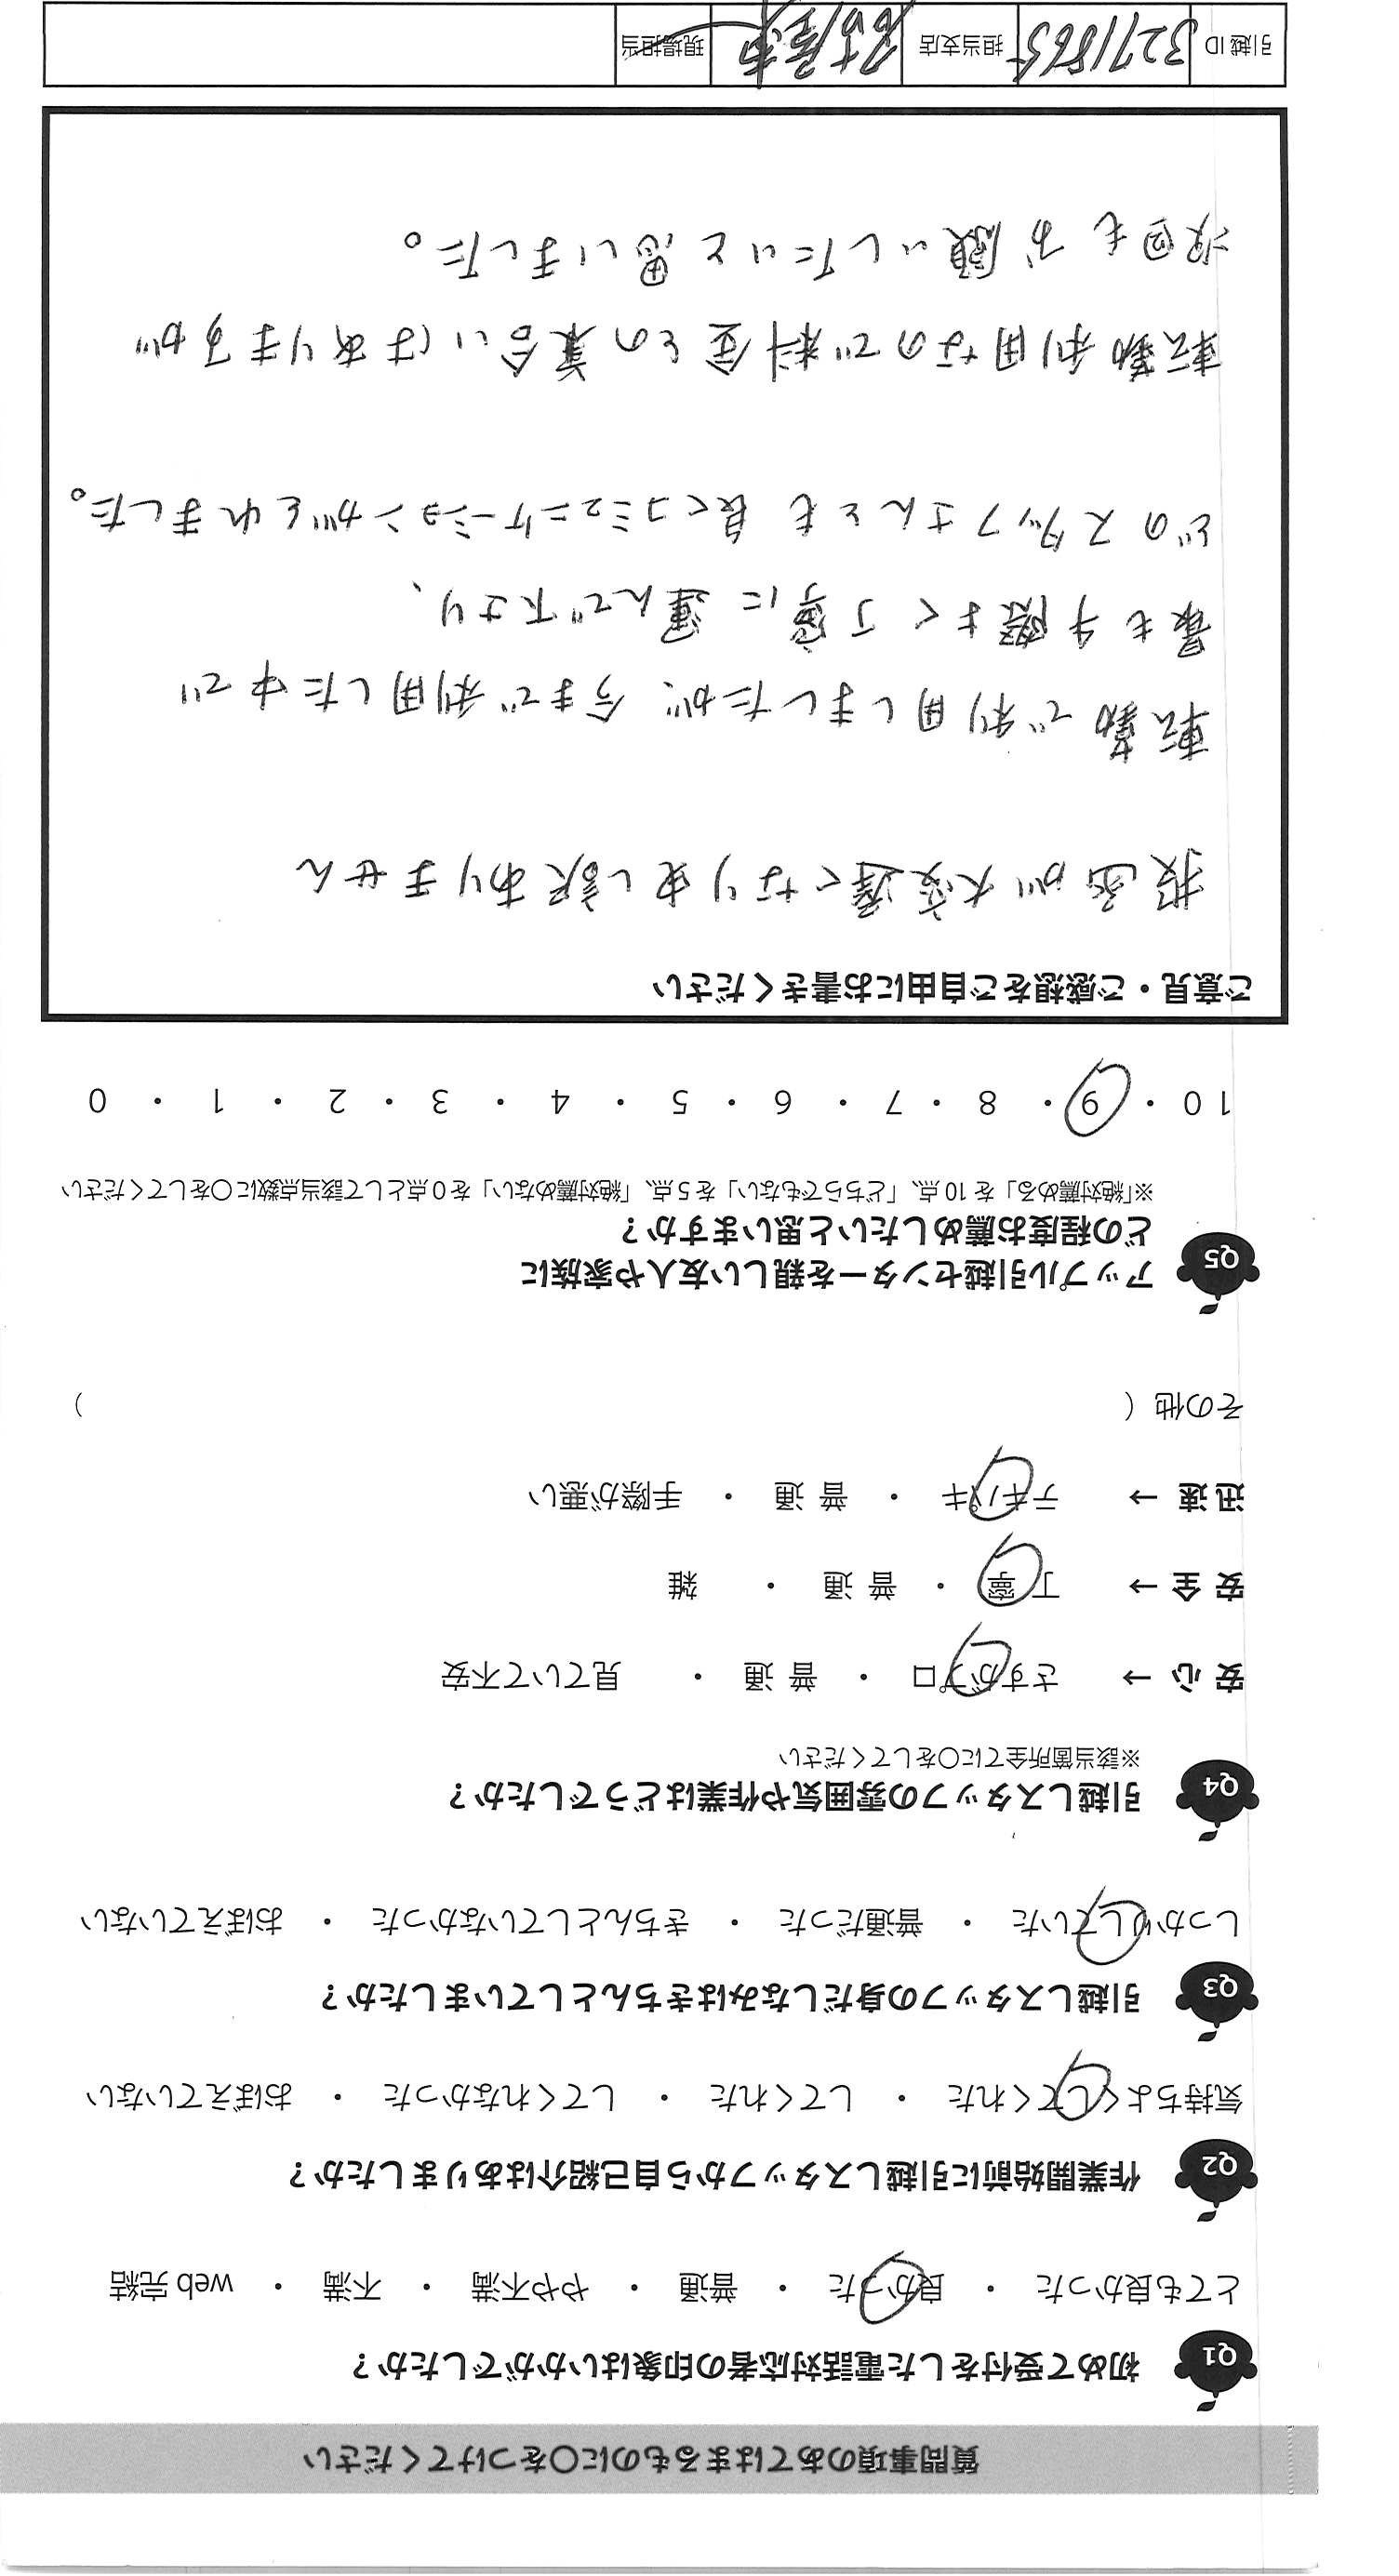 質問事項のあてはまるものに〇をつけてください
Q1 初めて受付をした電話対応者の印象はいかがでしたか？
とても良かった ・ 良かった ・ 普通 ・ やや不満 ・ 不満 ・ web 完結
Q2 作業開始前に引越しスタッフから自己紹介はありましたか？
気持ちよくしてくれた ・ してくれた ・ してくれなかった ・ おぼえていない
Q3 引越しスタッフの身だしなみはきちんとしていましたか？
しっかりしていた ・ 普通だった ・ きちんとしていなかった ・ おぼえていない
Q4 引越しスタッフの雰囲気や作業はどうでしたか？
※該当箇所全てに〇をしてください
安 心 → さすがプロ ・ 普 通 ・ 見ていて不安
安 全 → 丁 寧 ・ 普 通 ・ 雑
迅 速 → テキパキ ・ 普 通 ・ 手際が悪い
その他（ ）
Q5 アップル引越センターを親しい友人や家族に
どの程度お薦めしたいと思いますか？
※「絶対薦める」を 10 点、「どちらでもない」を 5 点、「絶対薦めない」を 0 点として該当点数に〇をしてください
10 ・ 9 ・ 8 ・ 7 ・ 6 ・ 5 ・ 4 ・ 3 ・ 2 ・ 1 ・ 0
ご意見・ご感想をご自由にお書きください
投函が大変遅くなり申し訳ありません
転勤で利用しましたが、今まで利用した中で
最も手際よく丁寧に運んで下さり、
どのスタッフさんとも良くコミュニケーションがとれました。
転勤利用なので料金との兼合いはありますが
次回もお願いしたいと思いました。
引越 ID 3271865 担当支店 名古屋東 現場担当